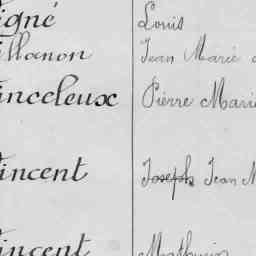 igné Louis
illanon Jean Marie
inceleux Pierre Marie
incent Joseph Jean M
incent Mathurin